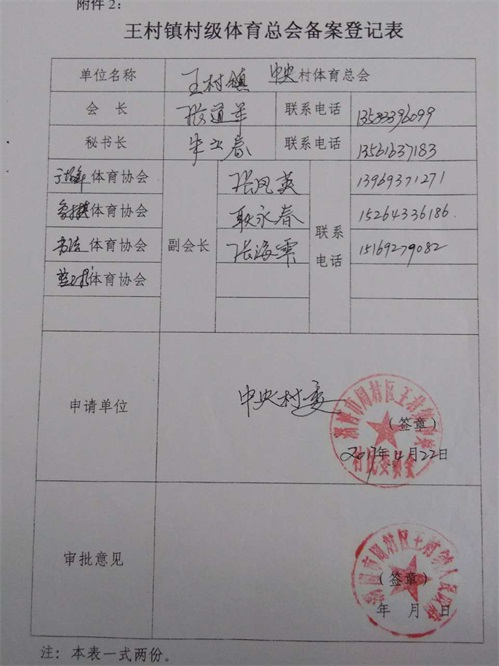 附件2:
王村镇村级体育总会备案登记表
单位名称 王村镇 中央村体育总会
会 长 张道军 联系电话
秘书长 朱立春 联系电话 13561637183
体育协会 张凤英 13969371271
体育协会 耿永春 15264336186
体育协会 副会长 张海霞 联系电话 15169279082
体育协会
申请单位 中央村委
(签章)
2017年4月22日
审批意见
(签章)
年 月 日
注：本表一式两份。